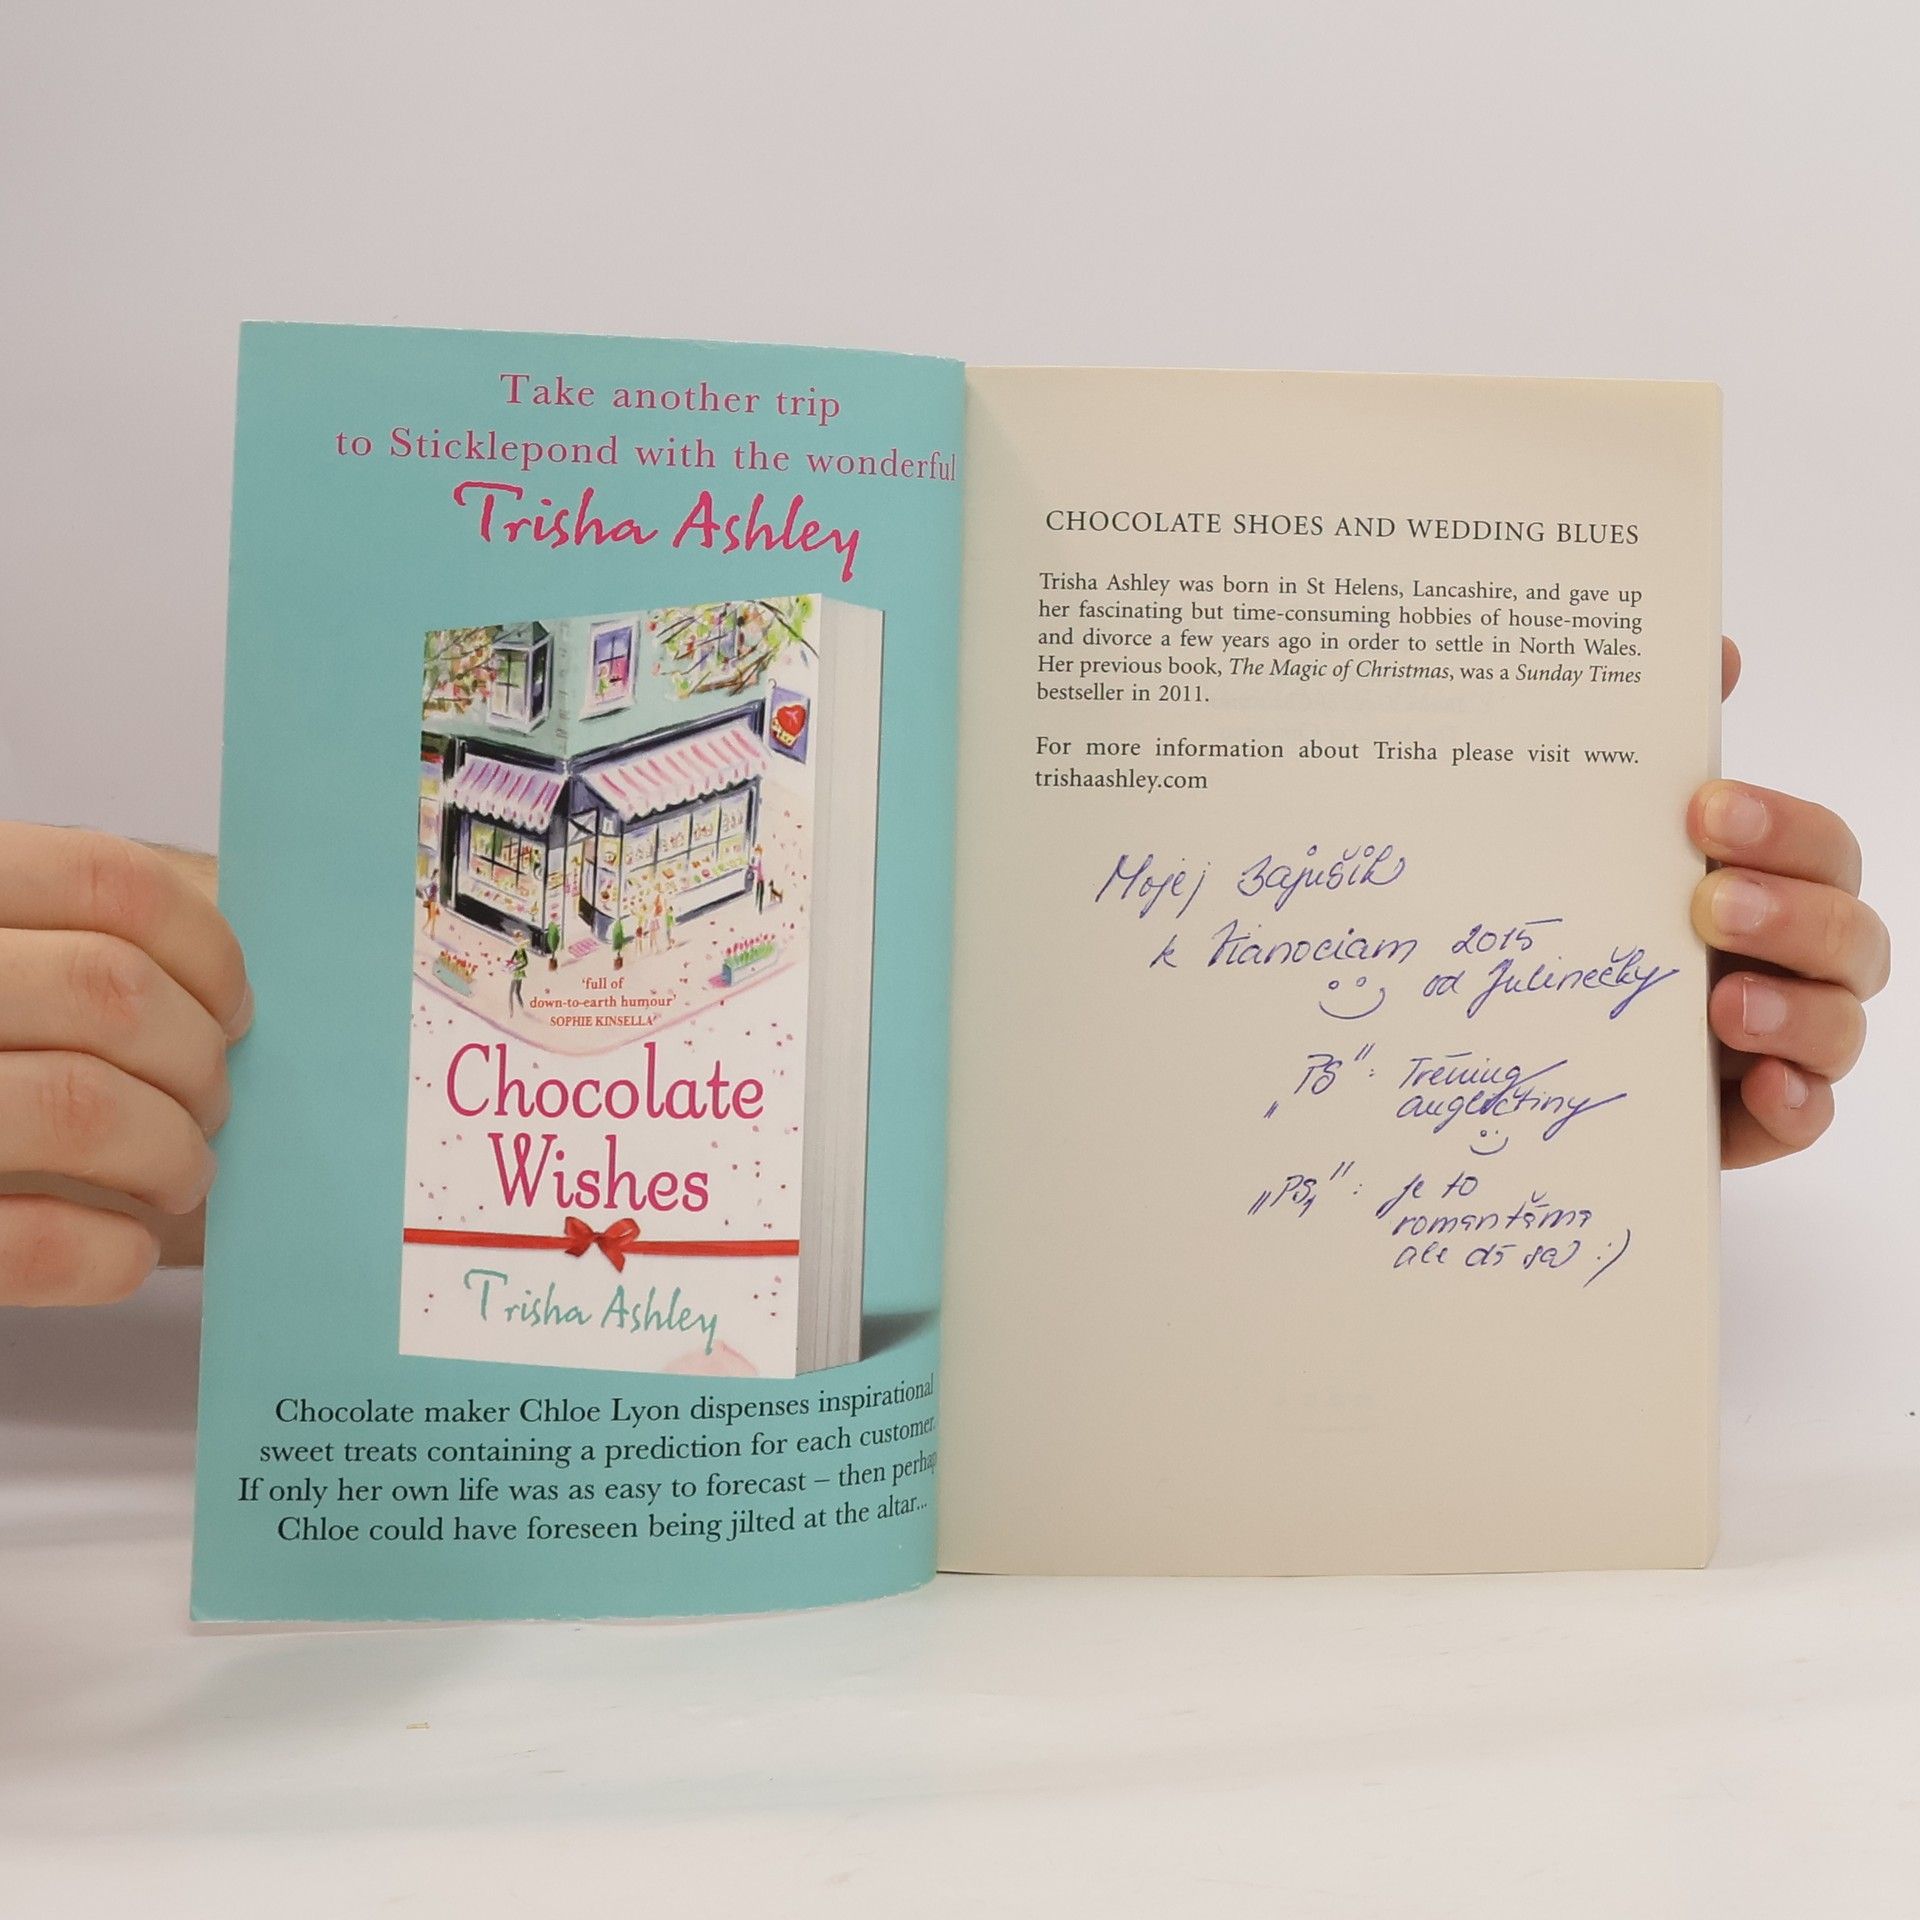 Take another trip
to Sticklepond with the wonderful
Trisha Ashley
'full of
down-to-earth humour'
SOPHIE KINSELLA
Chocolate
Wishes
Trisha Ashley
Chocolate maker Chloe Lyon dispenses inspirational
sweet treats containing a prediction for each customer.
If only her own life was as easy to forecast – then perhap
Chloe could have foreseen being jilted at the altar...
CHOCOLATE SHOES AND WEDDING BLUES
Trisha Ashley was born in St Helens, Lancashire, and gave up
her fascinating but time-consuming hobbies of house-moving
and divorce a few years ago in order to settle in North Wales.
Her previous book, The Magic of Christmas, was a Sunday Times
bestseller in 2011.
For more information about Trisha please visit www.
trishaashley.com
Mojej
k Vianociam 2015
od Julinečky
„PS": Tréning
angličtiny
„PS1": je to
ale dá sa :)